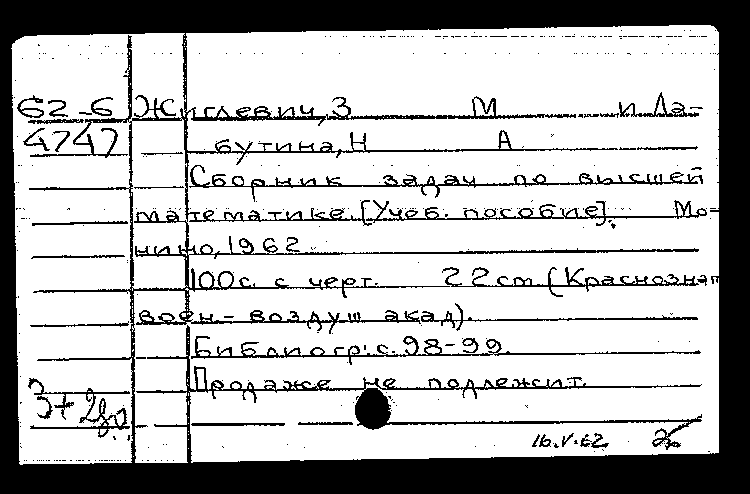 62-6 Жиглевич, З М и Ла-
4747 бутина, Н А
Сборник задач по высшей
математике. [Учеб. пособие]. Мо-
нино, 1962.
100с. с черт. 22см (Краснознам
воен-воздуш акад).
Библиогр: с. 98-99.
Продаже не подлежит.
16.V.62